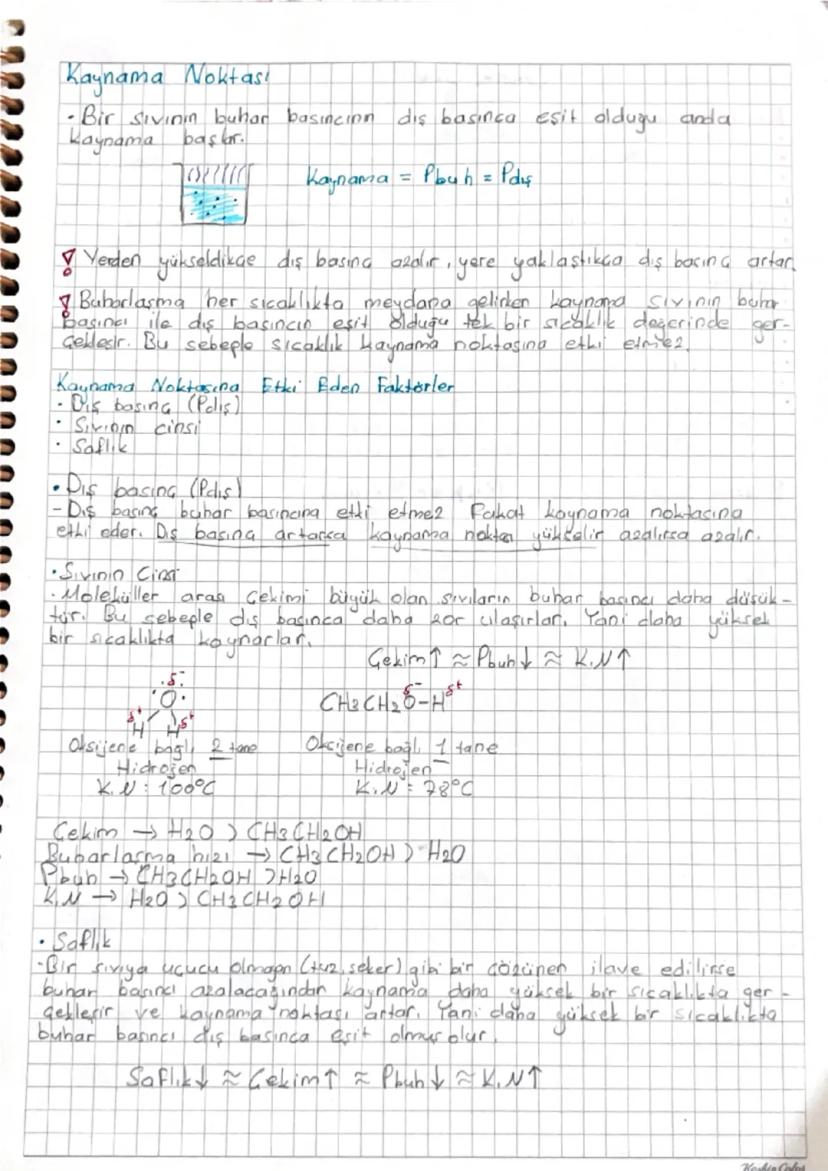 Kaynama Noktası
• Bir sıvının buhar basıncının dış basınca eşit olduğu anda
kaynama başlar.
Kaynama = Pbuh = Pdış
! Yerden yükseldikçe dış basınç azalır, yere yaklaştıkça dış basınç artar.
! Buharlaşma her sıcaklıkta meydana gelirken kaynama sıvının buhar
basıncı ile dış basıncın eşit olduğu tek bir sıcaklık değerinde ger-
çekleşir. Bu sebeple sıcaklık kaynama noktasına etki etmez.
Kaynama Noktasına Etki Eden Faktörler
• Dış basınç (Pdış)
• Sıvının cinsi
• Saflık
• Dış basınç (Pdış)
- Dış basınç buhar basıncına etki etmez Fakat kaynama noktasına
etki eder. Dış basınç artarsa kaynama noktası yükselir azalırsa azalır.
• Sıvının Cinsi
• Moleküller arası Çekimi büyük olan sıvıların buhar basıncı daha düşük-
tür. Bu sebeple dış basınca daha zor ulaşırlar. Yani daha yüksek
bir sıcaklıkta kaynarlar.
Çekim↑ ≈ Pbuh↓ ≈ K.N↑
δ-
O
δ+ δ+
H H
δ- δ+
CH3CH2O-H
Oksijene bağlı 2 tane
Hidrojen
K.N : 100°C
Oksijene bağlı 1 tane
Hidrojen
K.N = 78°C
Çekim → H2O > CH3CH2OH
Buharlaşma hızı → CH3CH2OH > H2O
Pbuh → CH3CH2OH > H2O
K.N → H2O > CH3CH2OH
• Saflık
- Bir sıvıya uçucu olmayan (tuz, şeker) gibi bir çözünen ilave edilirse
buhar basıncı azalacağından kaynama daha yüksek bir sıcaklıkta ger-
çekleşir ve kaynama noktası artar. Yani daha yüksek bir sıcaklıkta
buhar basıncı dış basınca eşit olmuş olur.
Saflık↓ ≈ Çekim↑ ≈ Pbuh↓ ≈ K.N↑